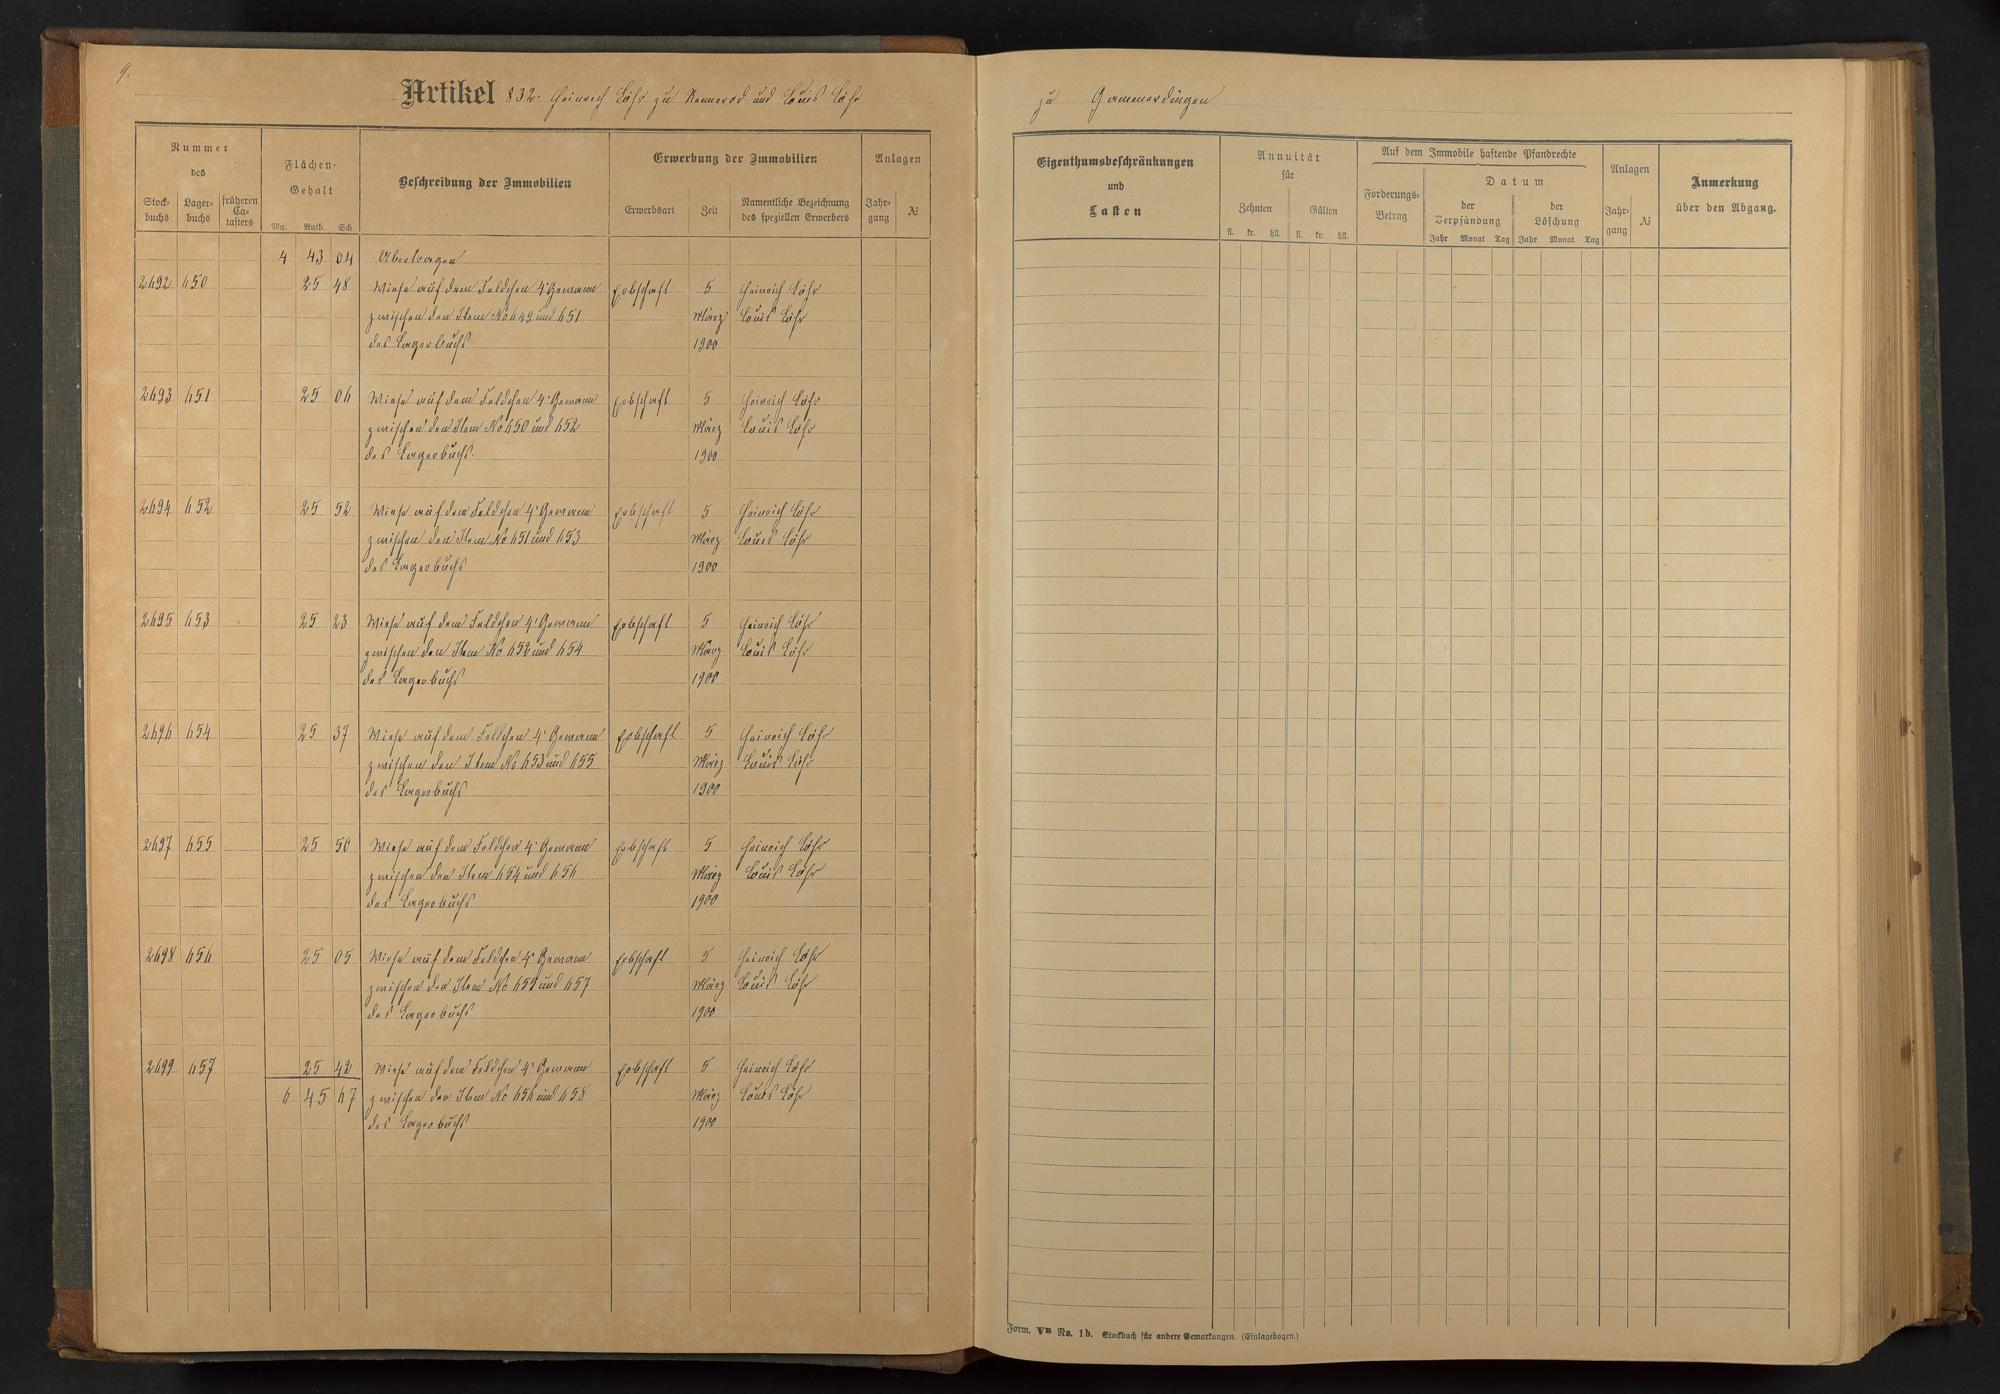 9.
Artikel 832. Heinrich Löhr zu Rennerod und Louis Löhr
Nummer
des
Stock-
buchs
Lager-
buchs
früheren
Ca-
tasters
Flächen-
Gehalt
Mg. Ruth. Sch.
Beschreibung der Immobilien
Erwerbung der Immobilien
Erwerbsart
Zeit
Namentliche Bezeichnung
des speziellen Erwerbers
Anlagen
Jahr-
gang
№
4 43 04 Übertragen
2692 650 25 48 Wiese auf dem Feldchen 4r Gewann Erbschaft 5 Heinrich Löhr
zwischen den Item No 649 und 651 März Louis Löhr
des Lagerbuchs 1900
2693 651 25 06 Wiese auf dem Feldchen 4r Gewann Erbschaft 5 Heinrich Löhr
zwischen den Item No 650 und 652 März Louis Löhr
des Lagerbuchs. 1900
2694 652 25 52 Wiese auf dem Feldchen 4r Gewann Erbschaft 5 Heinrich Löhr
zwischen den Item No 651 und 653 März Louis Löhr
des Lagerbuchs 1900
2695 653 25 23 Wiese auf dem Feldchen 4r Gewann Erbschaft 5 Heinrich Löhr
zwischen den Item No 652 und 654 März Louis Löhr
des Lagerbuchs 1900
2696 654 25 37 Wiese auf dem Feldchen 4r Gewann Erbschaft 5 Heinrich Löhr
zwischen den Item No 653 und 655 März Louis Löhr
des Lagerbuchs 1900
2697 655 25 50 Wiese auf dem Feldchen 4r Gewann Erbschaft 5 Heinrich Löhr
zwischen den Item 654 und 656 März Louis Löhr
des Lagerbuchs 1900
2698 656 25 05 Wiese auf dem Feldchen 4r Gewann Erbschaft 5 Heinrich Löhr
zwischen den Item No 655 und 657 März Louis Löhr
des Lagerbuchs 1900
2699 657 25 42 Wiese auf dem Feldchen 4r Gewann Erbschaft 5 Heinrich Löhr
6 45 67 zwischen den Item No 656 und 658 März Louis Löhr
des Lagerbuchs 1900
zu
Eigenthumsbeschränkungen
und
Lasten
Annuität
für
Zehnten
Gülten
fl. kr. hll. fl. kr. hll.
Auf dem Immobile haftende Pfandrechte
Forderungs-
Betrag
Datum
der
Verpfändung
der
Löschung
Jahr Monat Tag Jahr Monat Tag
Anlagen
Jahr-
gang
№
Anmerkung
über den Abgang.
Form. VB No. 1b. Stockbuch für andere Gemarkungen. (Einlagebogen.)